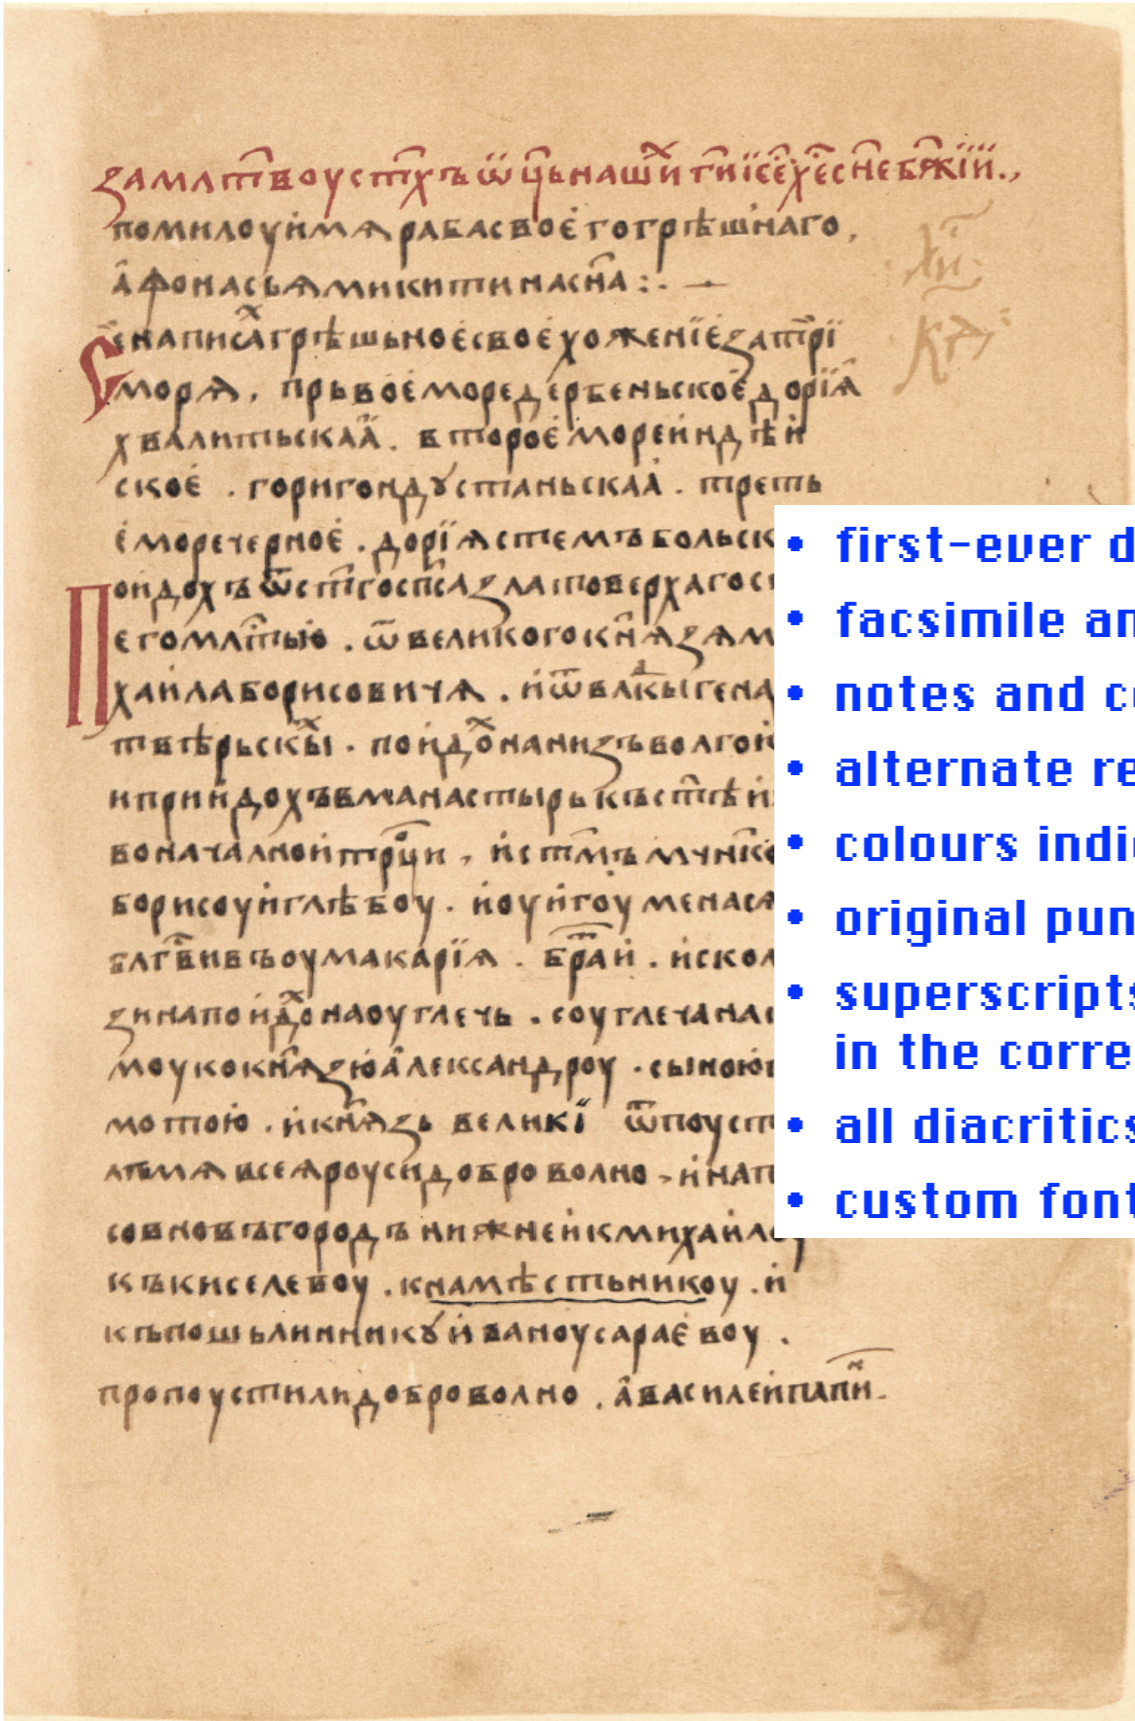 за млт҃въ оу ст҃хъ ѿц҃ь наши гн҃и іс҃е хе҃ сн҃е бж҃їи.,
помилоуи мѧ раба своего грѣшнаго,
афонасьѧ микитина сн҃а :. —
Се написа грѣшьное свое хоженїе за три
морѧ, прьвое море дербеньское дорїа
хвалитьскаа. второе море индѣи
ское. гори гондꙋстаньскаа. треть
е море черное. дорїѧ стемъбольск
Поидохъ ѿ ст҃го сп҃са златоверхаго с
его млт҃ью. ѿ великого кн҃ѧзѧ м
хаила борисовичѧ. и ѿ влкы гена
твѣрьскы. поидо на низъ волгои
и приидохъ в манастырь къ ст҃ѣи
воначалнои трц҃и, и ст҃мъ мчн҃ко
борисоу и глѣбоу. и оу игоу мена сѧ
блг҃вивъ оу макарїѧ. братьи. и с кол
зина поидо на оуглечь. с оуглеча на
моу ко кн҃ѧзю александроу. с ыною
мотою. и кн҃ѧзь великї ѿпоуст
мѧ всеѧ роуси доброволно. и на п
сов новъгородъ нижнеи к михаило
къ киселевоу. к намѣстьникоу. и
къ пошьлинникꙋ иваноу сараевоу.
пропоустили доброволно. а василеи папи.
• first-ever d
• facsimile an
• notes and c
• alternate re
• colours indi
• original pun
• superscripts
in the corre
• all diacritics
• custom font